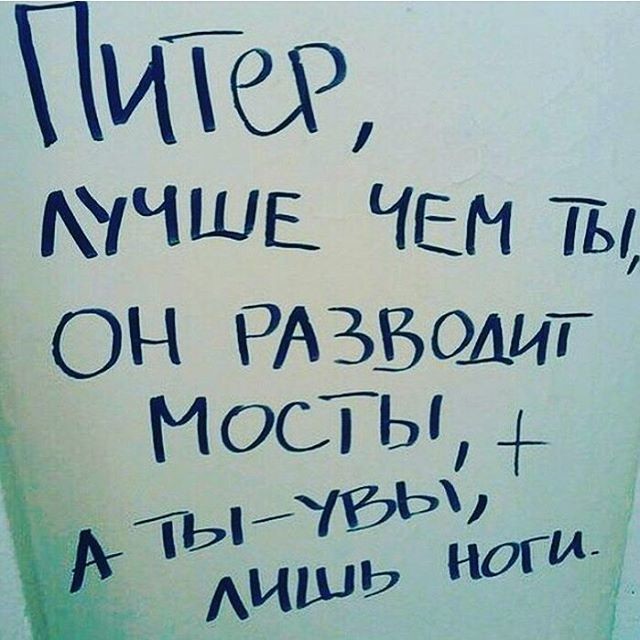 Питер,
ЛУЧШЕ ЧЕМ ТЫ,
ОН РАЗВОДИТ
МОСТЫ, +
А ТЫ-УВЫ,
ЛИШЬ НОГИ.